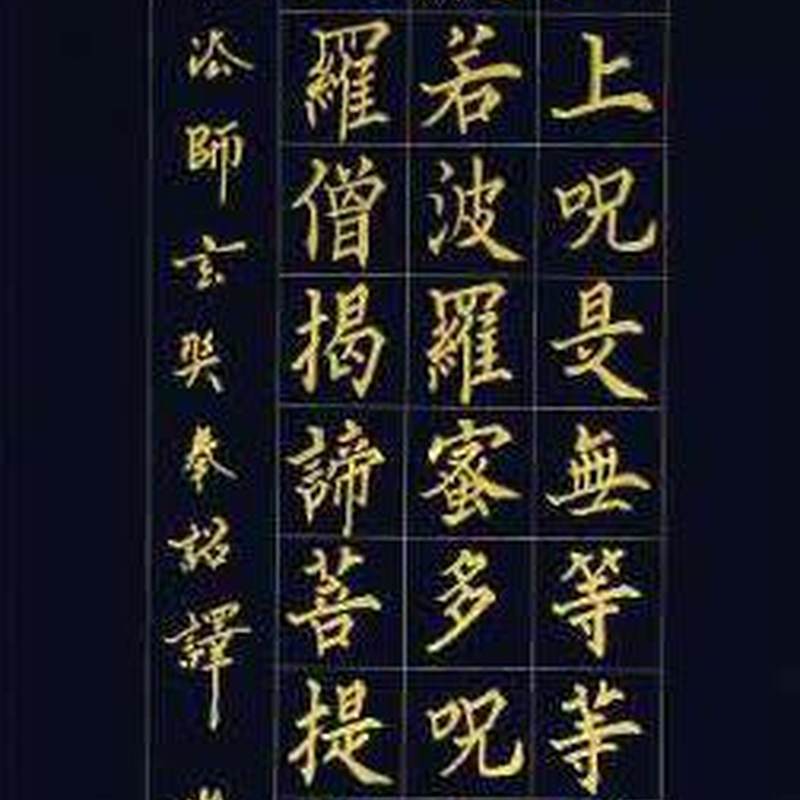 上呪是無等等
若波羅蜜多呪
羅僧揭諦菩提
法師玄奘奉詔譯